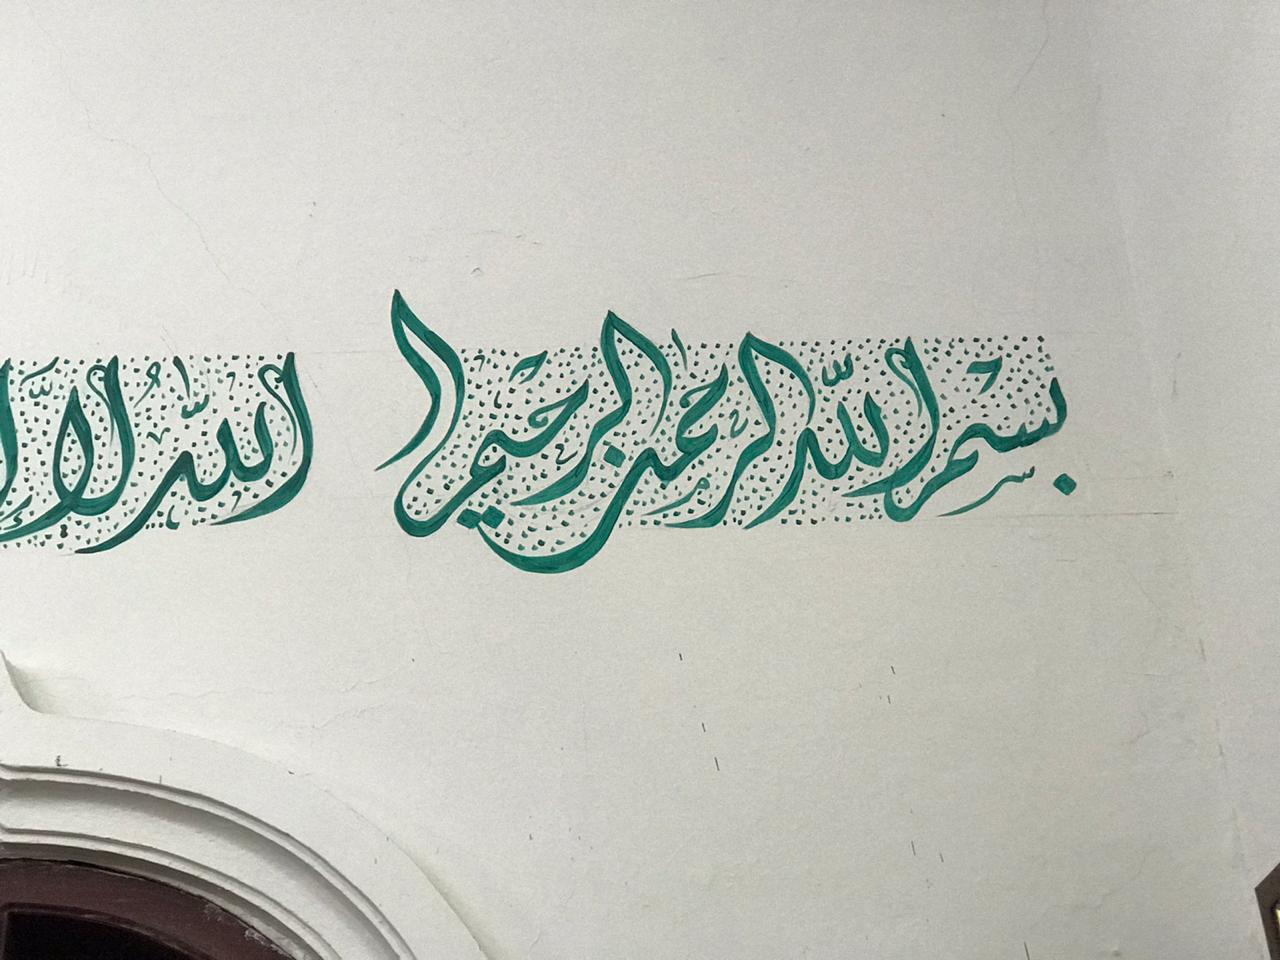 بسم الله الرحمن الرحيم الله لا